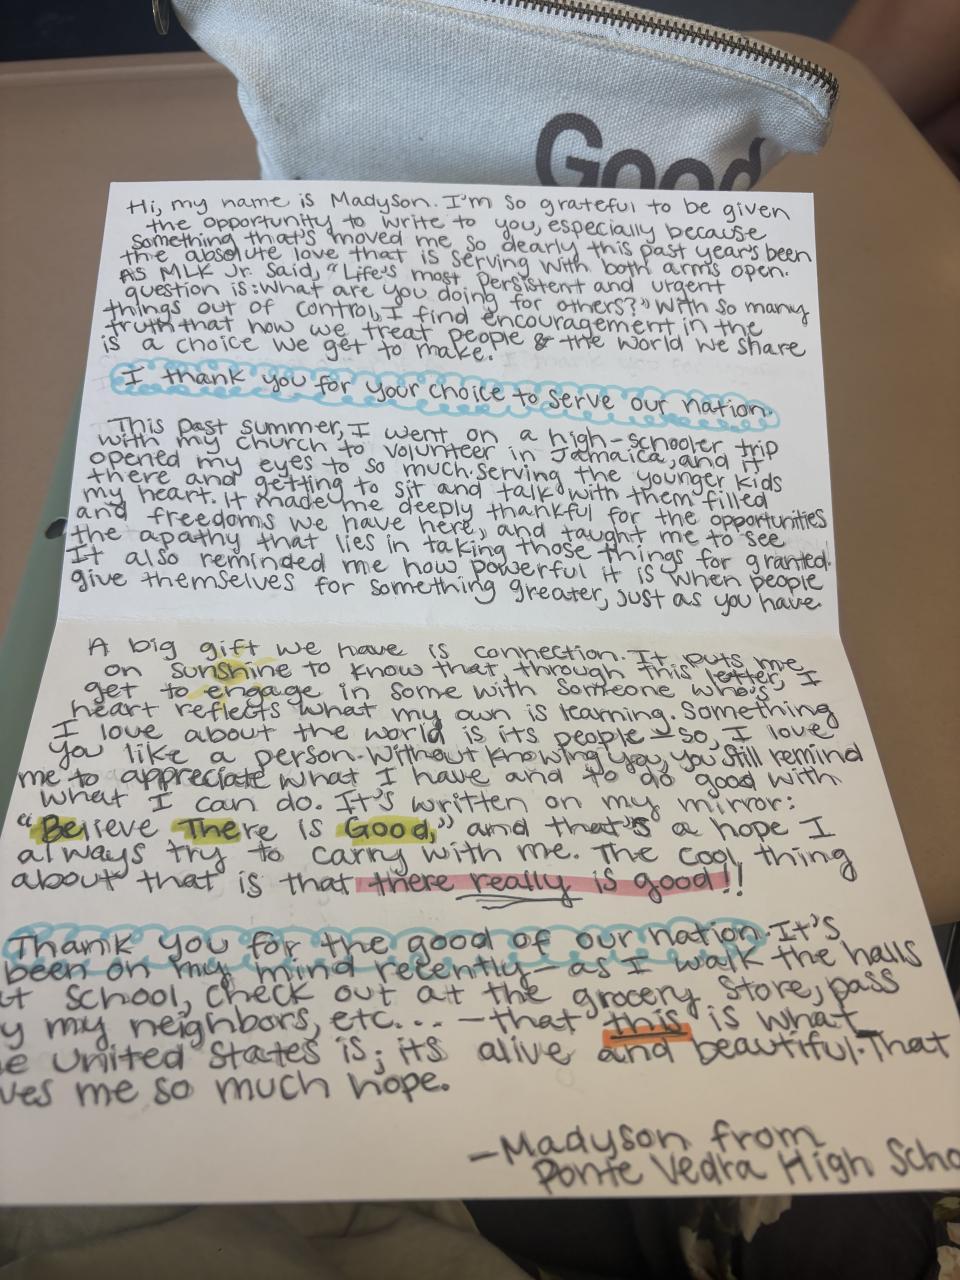 Good
Hi, my name is Madyson. I'm so grateful to be given
the opportunity to write to you, especially because
something that's moved me so dearly this past year's been
the absolute love that is serving with both arms open.
As MLK Jr. said, "Life's most persistent and urgent
question is: What are you doing for others?" With so many
things out of control, I find encouragement in the
truth that how we treat people & the world we share
is a choice we get to make.
I thank you for your choice to serve our nation.
This past summer, I went on a high-schooler trip
with my church to volunteer in Jamaica, and it
opened my eyes to so much. Serving the younger kids
there and getting to sit and talk with them filled
my heart. It made me deeply thankful for the opportunities
and freedoms we have here, and taught me to see
the apathy that lies in taking those things for granted.
It also reminded me how powerful it is when people
give themselves for something greater, just as you have.
A big gift we have is connection. It puts me
on sunshine to know that through this letter, I
get to engage in some with someone who's
heart reflects what my own is learning. Something
I love about the world is its people – so, I love
you like a person. Without knowing you, you still remind
me to appreciate what I have and to do good with
what I can do. It's written on my mirror:
"Believe There is Good," and that's a hope I
always try to carry with me. The cool thing
about that is that there really is good!!
Thank you for the good of our nation. It's
been on my mind recently – as I walk the halls
at school, check out at the grocery store, pass
y my neighbors, etc... – that this is what
e United States is; its alive and beautiful. That
ves me so much hope.
– Madyson from
Ponte Vedra High Scho